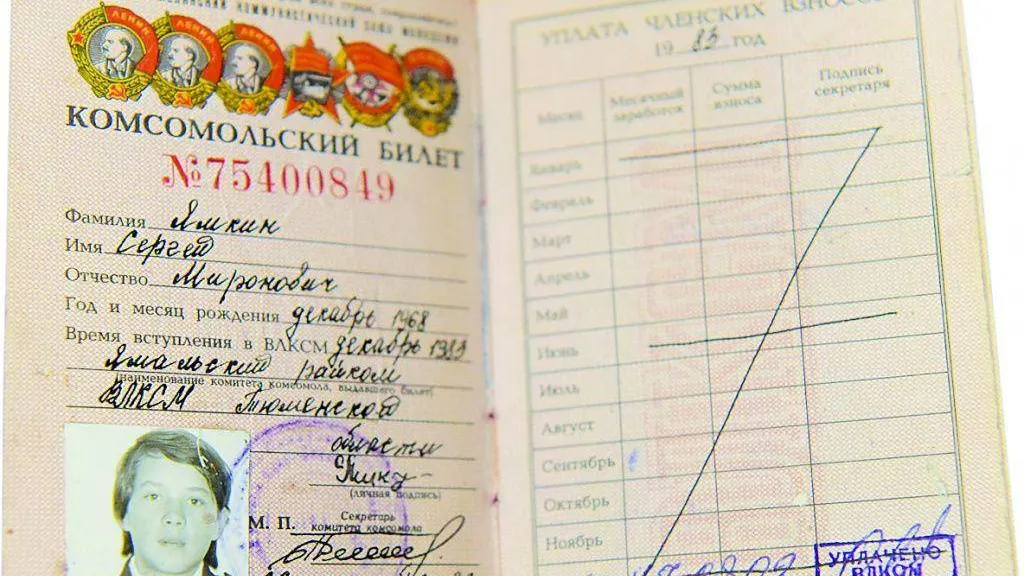 ЛЕНИН
ЛЕНИН
ЛЕНИН
КОМСОМОЛЬСКИЙ БИЛЕТ
№75400849
Фамилия Ямкин
Имя Сергей
Отчество Миронович
Год и месяц рождения декабрь 1968
Время вступления в ВЛКСМ декабрь 1983
Ямальский райком
(наименование комитета комсомола, выдавшего билет)
ВЛКСМ Тюменской
области
(личная подпись)
М. П. Секретарь
комитета комсомола
УПЛАТА ЧЛЕНСКИХ ВЗНОСОВ
1983 год
Месяц Месячный заработок Сумма взноса Подпись секретаря
Январь
Февраль
Март
Апрель
Май
Июнь
Июль
Август
Сентябрь
Октябрь
Ноябрь
УПЛАЧЕНО
ВЛКСМ